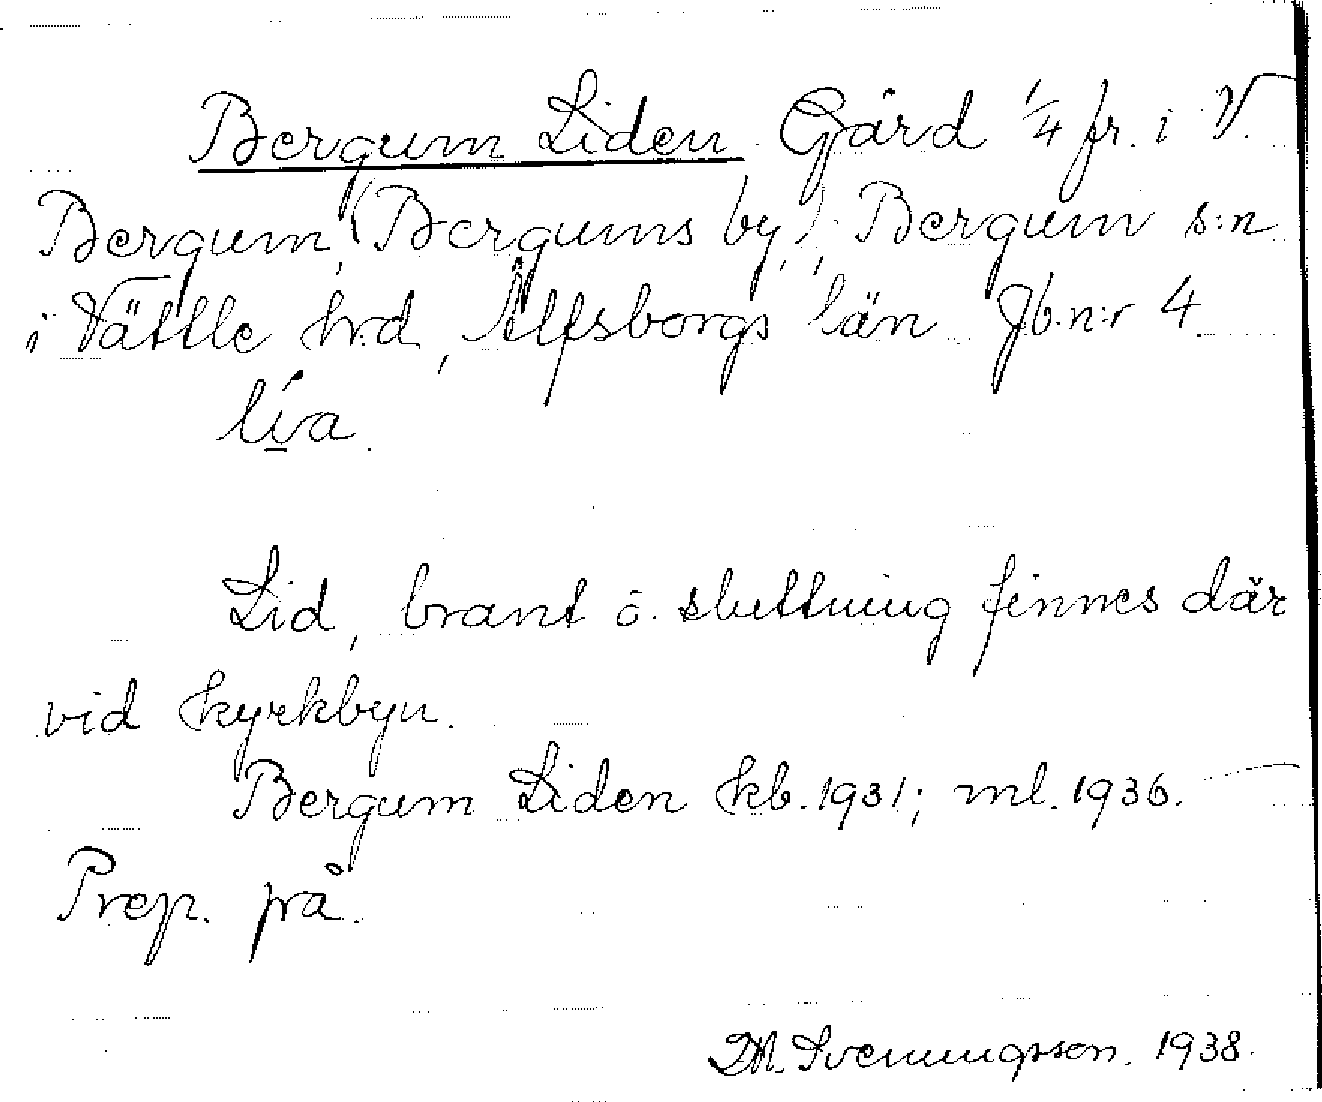 Bergum Liden Gård 1/4 fr. i V.
Bergum, (Bergums by), Bergum s:n
i Vättle h:d, Älfsborgs län Jb.n:r 4.
lía.
Lid, brant ö. sluttning finnes där
vid kyrkbyn.
Bergum Liden kb. 1931; ml. 1936.
Prep. på.
Svenungsson. 1938.